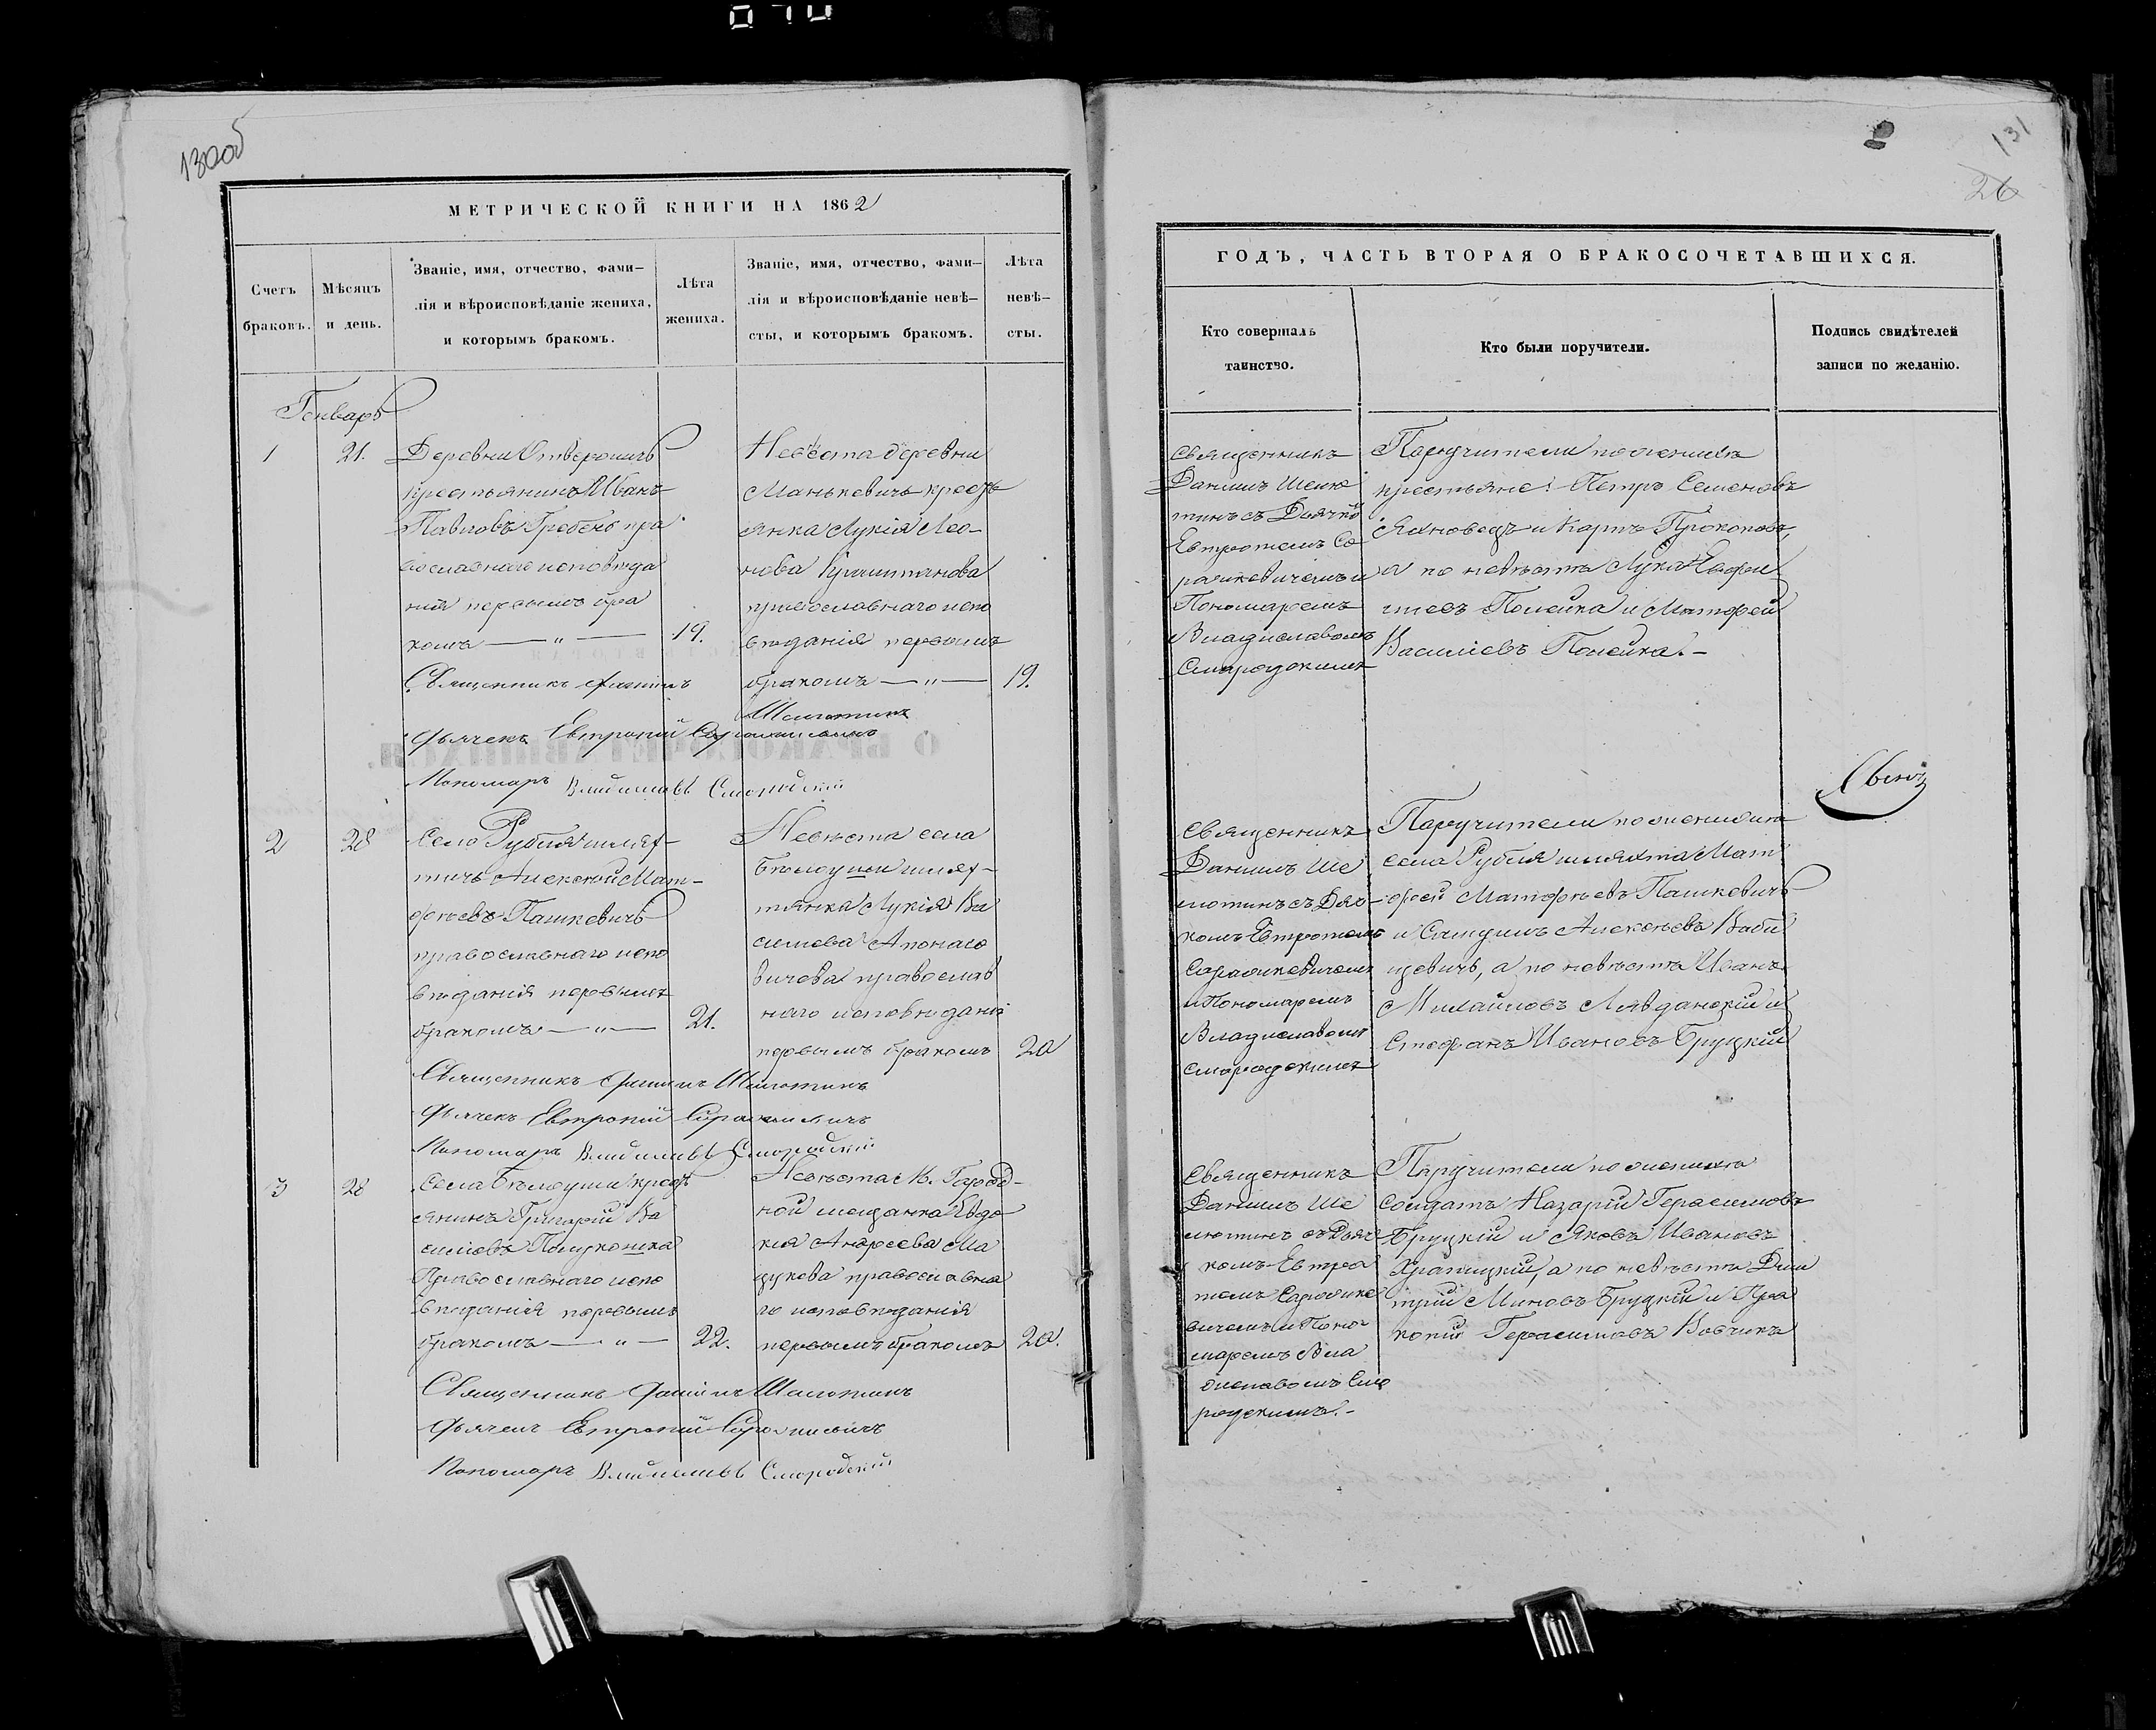 070
130об
МЕТРИЧЕСКОЙ КНИГИ НА 1862
Счетъ
браковъ.
Мѣсяцъ
и день.
Званіе, имя, отчество, фами-
лія и вѣроисповѣданіе жениха,
и которымъ бракомъ.
Лѣта
жениха.
Званіе, имя, отчество, фами-
лія и вѣроисповѣданіе невѣ-
сты, и которымъ бракомъ.
Лѣта
невѣ-
сты.
Генварь
1
21.
Деревни
крестьянинъ Иванъ
Павловъ Гребень пра
вославнаго исповѣда
нія первымъ бра
комъ — " —
19.
Невѣста деревни
Манькевичь кресть
янка Лукія Лео-
нова
православнаго испо
вѣданія первымъ
бракомъ — " —
19.
Священникъ Даніилъ
Шелютинъ
Дьячекъ Евтропій
Пономарь Владиславъ Смородскій
2
28
Села Рубля шлях-
тичь Алексѣй Мат-
фѣевъ Пашкевичь
православнаго испо
вѣданія первымъ
бракомъ — " —
21.
Невѣста села
Бѣлоуши шлях-
тянка Лукія Ва
силева
вичева православ
наго исповѣданія
первымъ бракомъ
20
Священникъ Даніилъ Шелютинъ
Дьячекъ Евтропій
Пономарь Владиславъ Смородскій
3
28
Села Бѣлоуши крест
янинъ Григорій Ва
силіевъ Полукошка
Православнаго испо
вѣданія первымъ
бракомъ — " —
22.
Невѣста М. Городд-
ной мещанка Евдо
кія Андреева Ма
цукова православна
го исповѣданія
первымъ бракомъ
20.
Священникъ Даніилъ Шелютинъ
Дьячекъ Евтропій
Пономарь Владиславъ Смородскій
131
26
ГОДЪ, ЧАСТЬ ВТОРАЯ О БРАКОСОЧЕТАВШИХСЯ.
Кто совершалъ
таинство.
Кто были поручители.
Подпись свидѣтелей
записи по желанію.
Священникъ
Даніилъ Шелю
тинъ съ Дьячко
Евтропіемъ Са
Пономаремъ
Владиславомъ
Смородскимъ
Поручители по женихѣ
крестьяне: Петръ Семеновъ
Яхновецъ и Карпъ Прокоповъ,
а по невѣстѣ Лука Евфи
міевъ Полейка и Матфей
Василіевъ Полейка. —
Священникъ
Даніилъ Ше
лютинъ съ Дьяч
комъ Евтропіемъ
и Пономаремъ
Владиславомъ
Смородскимъ
Поручители по женихѣ
села Рубля шляхта Мат
фей Матфѣевъ Пашкевичь
и Самуилъ Алексѣевъ Баби
цевичь, а по невѣстѣ Иванъ
Михайловъ Лявданскій и
Стефанъ Ивановъ Бруцкій
Священникъ
Даніилъ Ше
лютинъ съ Дьяч
комъ Евтро
піемъ
вичемъ и Поно
маремъ Вла
диславомъ Смо
родскимъ. —
Поручители по женихѣ
Солдатъ Назарій Герасимовъ
Бруцкій и Яковъ Ивановъ
Храпицкій, а по невѣстѣ Дми
трій Миновъ Бруцкій и Про
копій Герасимовъ Вовчикъ